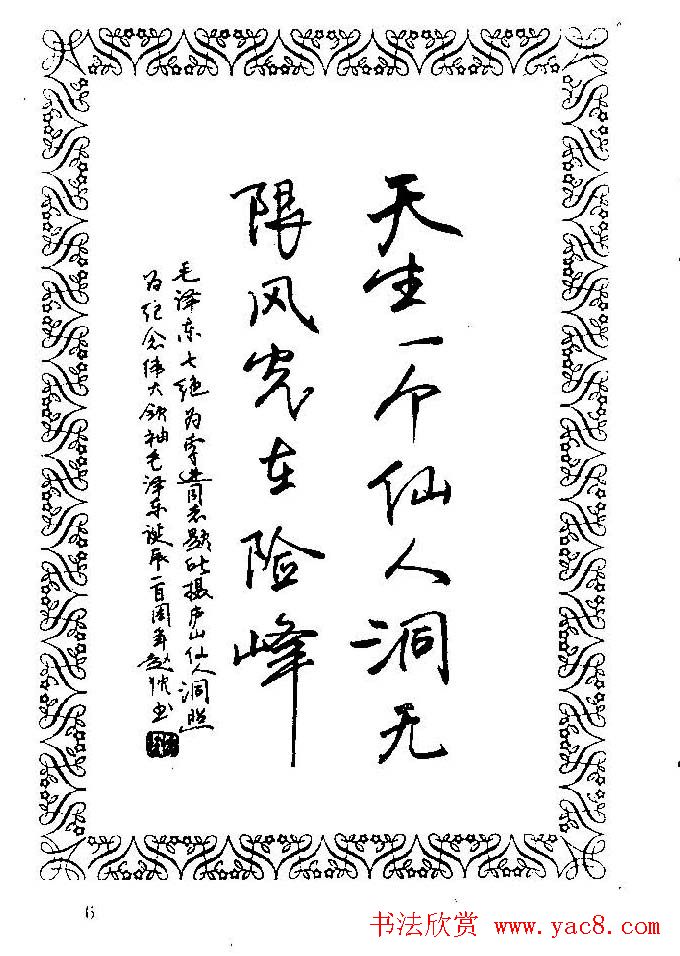 天生一个仙人洞无
限风光在险峰
毛泽东七绝为李进同志题所摄庐山仙人洞照
为纪念伟大领袖毛泽东诞辰一百周年 书
6
书法欣赏 www.yac8.com